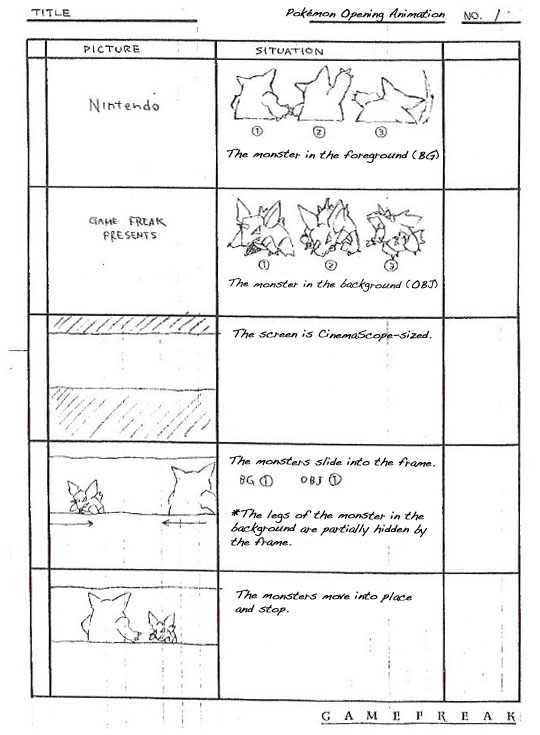 TITLE
Pokémon Opening Animation
NO. 1
PICTURE
SITUATION
Nintendo
① ② ③
The monster in the foreground (BG)
GAME FREAK
PRESENTS
① ② ③
The monster in the background (OBJ)
The screen is CinemaScope-sized.
The monsters slide into the frame.
BG ① OBJ ①
*The legs of the monster in the
background are partially hidden by
the frame.
The monsters move into place
and stop.
GAMEFREAK